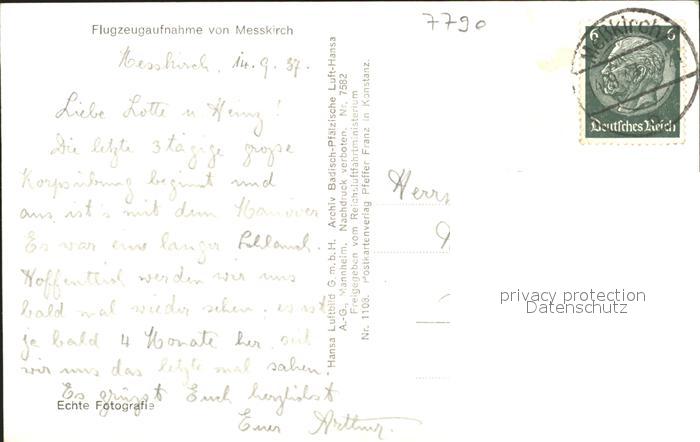 7790
Flugzeugaufnahme von Messkirch
Messkirch, 14.9.37.
Liebe Lotte u. Heinz!
Die letzte 3 tägige große
Korpsübung beginnt und
aus ist's mit dem Manöver
Es war ein langer Schlauch.
Hoffentlich werden wir uns
bald mal wieder sehen. es ist
ja bald 4 Monate her, seit
wir uns das letzte mal sahen.
Es grüsst Euch herzlichst
Euer Arthur.
Echte Fotografie
Hansa Luftbild G.m.b.H. Archiv Badisch-Pfälzische Luft-Hansa
A.-G., Mannheim. Nachdruck verboten. Nr. 7582
Freigegeben vom Reichsluftfahrtministerium
Nr. 1103. Postkartenverlag Pfeffer Franz in Konstanz.
Meßkirch
6 6
Deutsches Reich
Herrn
privacy protection
Datenschutz